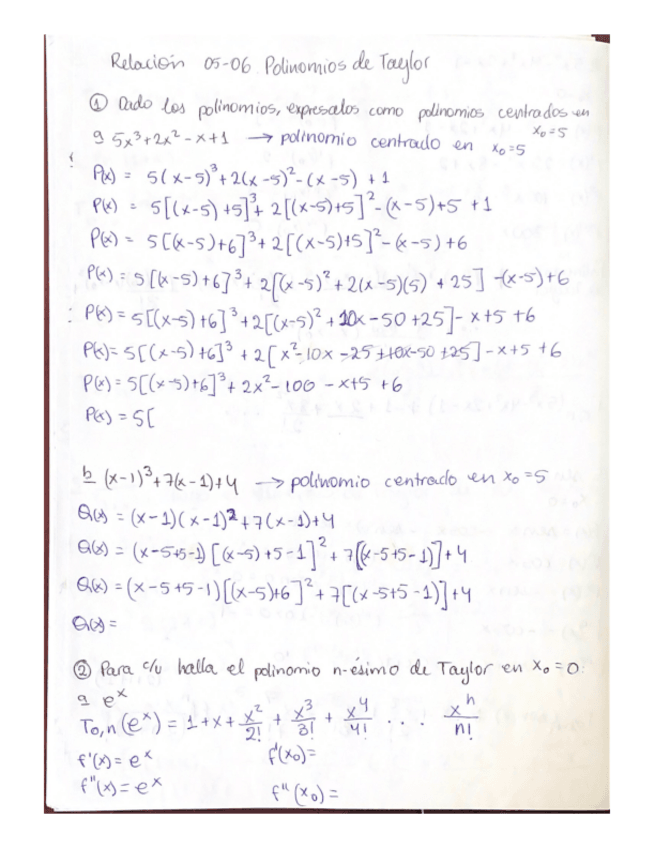 Relación 05-06 Polinomios de Taylor
① Dado los polinomios, expresalos como polinomios centrados en x₀=5
a 5x³+2x²-x+1 → polinomio centrado en x₀=5
P(x) = 5(x-5)³+2(x-5)²-(x-5)+1
P(x) = 5[(x-5)+5]³+2[(x-5)+5]²-(x-5)+5+1
P(x) = 5[(x-5)+6]³+2[(x-5)+5]²-(x-5)+6
P(x) = 5[(x-5)+6]³+2[(x-5)²+2(x-5)(5)+25]-(x-5)+6
P(x) = 5[(x-5)+6]³+2[(x-5)²+10x-50+25]-x+5+6
P(x) = 5[(x-5)+6]³+2[x²-10x-25+10x-50+25]-x+5+6
P(x) = 5[(x-5)+6]³+2x²-100-x+5+6
P(x) = 5[
b (x-1)³+7(x-1)+4 → polinomio centrado en x₀=5
Q(x) = (x-1)(x-1)²+7(x-1)+4
Q(x) = (x-5+5-1)[(x-5)+5-1]²+7[(x-5+5-1)]+4
Q(x) = (x-5+5-1)[(x-5)+6]²+7[(x-5+5-1)]+4
Q(x) =
② Para c/u halla el polinomio n-ésimo de Taylor en x₀=0
a eˣ
T₀,n(eˣ) = 1+x+x²/2!+x³/3!+x⁴/4! ... xⁿ/n!
f'(x)=eˣ f'(x₀)=
f''(x)=eˣ f''(x₀)=